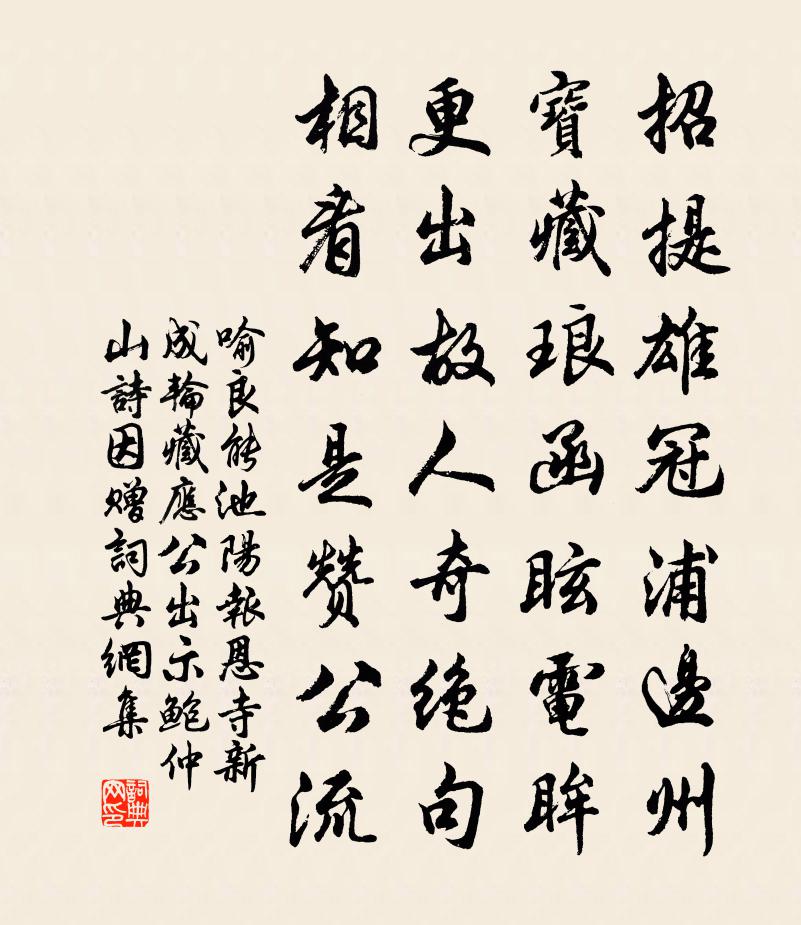 招提雄冠浦邊州
寶藏琅函眩電眸
更出故人奇絶句
相看知是贊公流
喻良能池陽報恩寺新
成輪藏應公出示鮑仲
山詩因贈詞典網集
詞典
网印